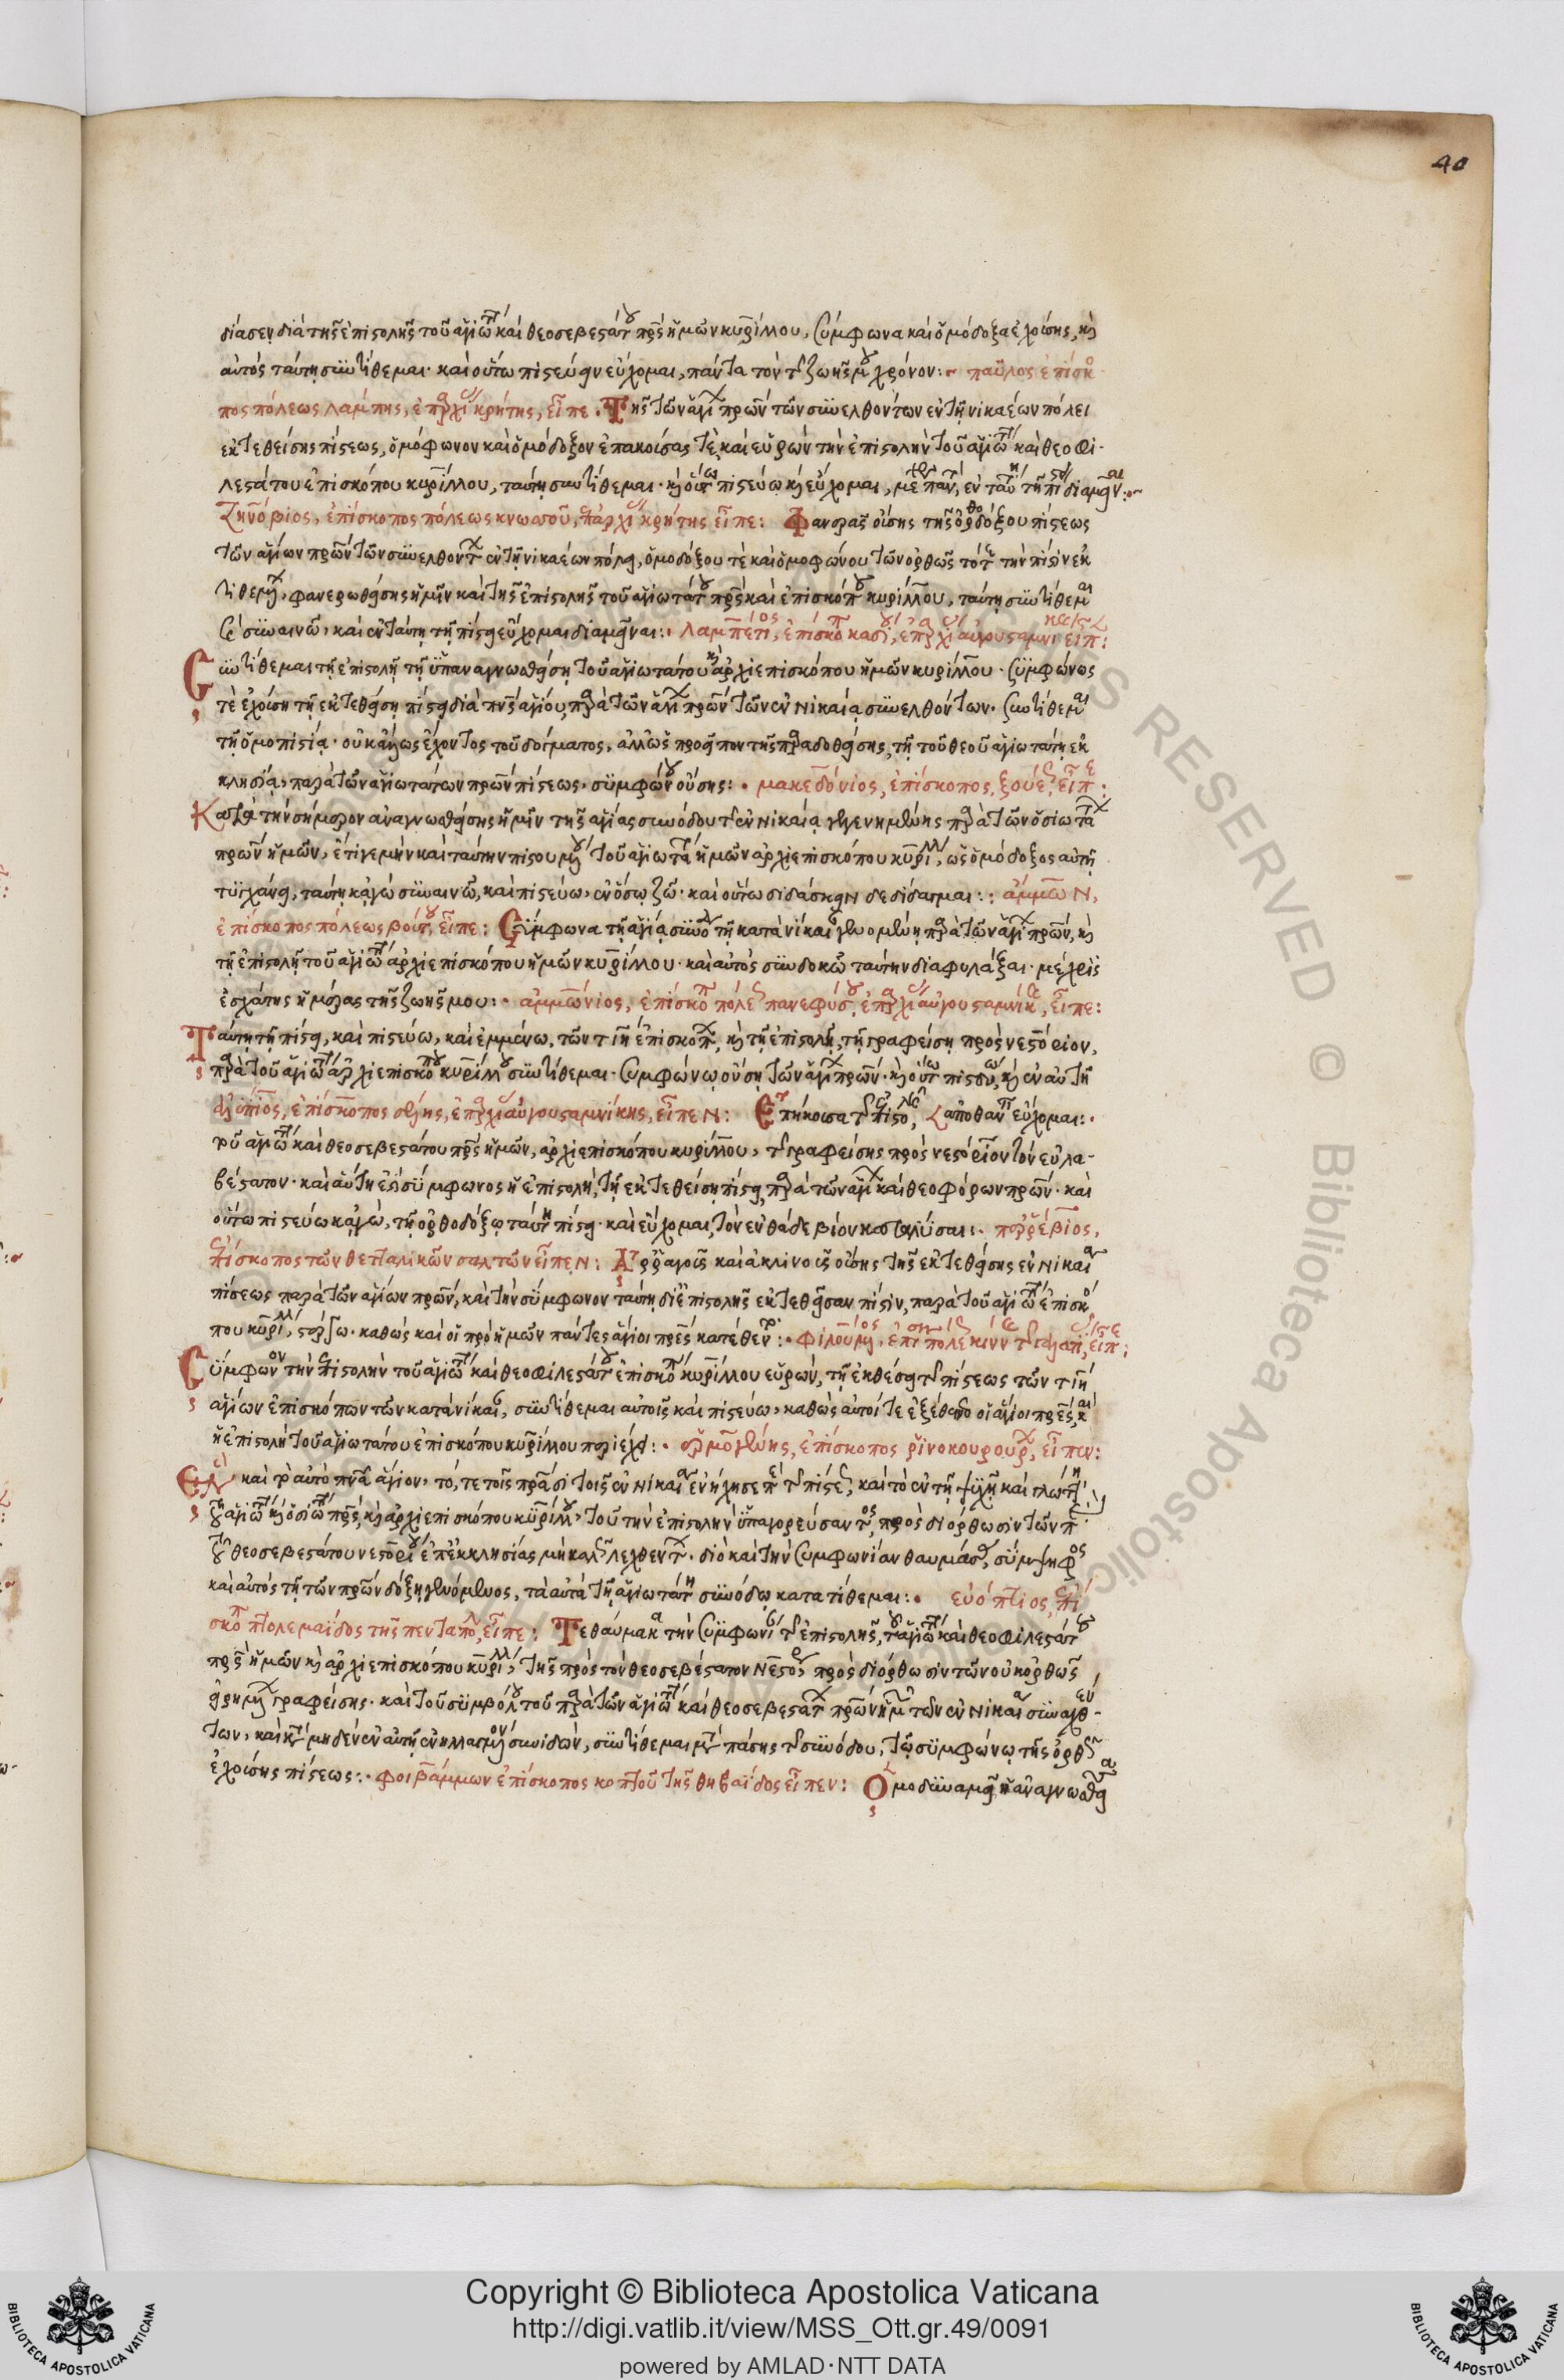 40
δίασεν διὰ τῆς ἐπιστολῆς τοῦ ἁγιωτ καὶ θεοσεβεστάτου πρς ἡμῶν κυρίλλου, σύμφωνα καὶ ὁμόδοξα ἐχούσης, κ
αὐτός ταύτη συντίθεμαι· καὶ οὕτω πιστεύειν εὔχομαι, πάντα τὸν τῆς ζωῆς μου χρόνον: παῦλος ἐπίσκ
πος πόλεως λάμπης, ἐπαρχί κρήτης, εἶπε. Τῆς τῶν ἁγί πρων τῶν συνελθόντων ἐν τῆ νικαέων πόλει
ἐκτεθείσης πίστεως, ὁμόφωνον καὶ ὁμόδοξον ἐπακούσας τὲ, καὶ εὑρὼν τὴν ἐπιστολὴν τοῦ ἁγιωτ καὶ θεοφι
λεστάτου ἐπισκόπου κυρίλλου, ταύτη συντίθεμαι· κ οὕτω πιστεύω κ εὔχομαι,
Ζηνόβιος, ἐπίσκοπος πόλεως κνωσοῦ, ἐπαρχί κρήτης εἶπε: Φανερᾶς οὔσης τῆς ὀρθοδόξου πίστεως
τῶν ἁγίων πρων τῶν συνελθόντ ἐν τῆ νικαέων πόλει, ὁμοδόξου τὲ καὶ ὁμοφώνου τῶν ὀρθῶς τότε τὴν πίστιν ἐκ
τιθεμ, φανερωθείσης ἡμῖν καὶ τῆς ἐπιστολῆς τοῦ ἁγιωτάτου πρς καὶ ἐπισκόπου κυρίλλου, ταύτη συντίθεμαι
κ συναινῶ, καὶ ἐν ταύτη τῆ πίστει εὔχομαι διαμεῖναι: λαμπέτιος, ἐπίσκοπ κασίου, ἐπαρχί αὐγουσταμνι εἶπ:
Συντίθεμαι τῆ ἐπιστολῆ τῆ ὑπαναγνωσθείση τοῦ ἁγιωτάτου κ ἀρχιεπισκόπου ἡμῶν κυρίλλου· συμφώνως
τὲ ἐχούση τῆ ἐκτεθείση πίστει διὰ πνς ἁγίου, παρὰ τῶν ἁγί πρων τῶν ἐν νικαία συνελθόντων. συντίθεμαι
τῆ ὁμοπιστία· οὐκ ἄλλως ἔχοντος τοῦ δόγματος, ἀλλ' ὡς προεῖπον τῆς παραδοθείσης, τῆ τοῦ θεοῦ ἁγιωτάτη ἐκ
κλησία, παρὰ τῶν ἁγιωτάτων πρων πίστεως, συμφώνου οὔσης: μακεδόνιος, ἐπίσκοπος, ξούεως, εἶπε:
Κατὰ τὴν σήμερον ἀναγνωσθείσης ἡμῖν τῆς ἁγίας συνόδου τῆς ἐν νικαία γεγενημένης παρὰ τῶν ὁσιωτά
πρων ἡμῶν, ἔτι γε μὴν καὶ ταύτην τοῦ ἁγιωτά ἡμῶν ἀρχιεπισκόπου κυρίλλ, ὡς ὁμόδοξος αὐτῆ
τυγχάνει, ταύτη κἀγὼ συναινῶ, καὶ πιστεύω, ἐν ὅσω ζῶ· καὶ οὕτω διδάσκειν δεδίδαγμαι: ἄμμων,
ἐπίσκοπος πόλεως βούτου, εἶπε: Σύμφωνα τῆ ἁγία συνόδ τῆ κατὰ νίκαιαν γενομένη παρὰ τῶν ἁγί πρων, κ
τῆ ἐπιστολῆ τοῦ ἁγιωτ ἀρχιεπισκόπου ἡμῶν κυρίλλου· καὶ αὐτὸς συνδοκῶ ταύτην διαφυλάξαι· μέχρις
ἐσχάτης ἡμέρας τῆς ζωῆς μου: ἀμμώνιος, ἐπίσκοπ πόλεως πανεφύσου, ἐπαρχί αὐγουσταμνικ, εἶπε:
Ταύτη τῆ πίστει, καὶ πιστεύω, καὶ ἐμμένω, τῶν τιη ἐπισκόπ, κ τῆ ἐπιστολῆ, τῆ γραφείση πρὸς νεστόριον,
παρὰ τοῦ ἁγιωτ ἀρχιεπισκόπου κυρίλλου συντίθεμαι. συμφώνω οὔση τῶν ἁγί πρων· κ οὕτω πιστεύω, κ ἐν αὐτῆ
ἀλύπιος, ἐπίσκοπος σέλης, ἐπαρχί αὐγουσταμνίκης, εἶπεν: Ἐπήκουσα τῆς ἐπιστολῆς ἀποθανεῖν εὔχομαι:
τοῦ ἁγιωτ καὶ θεοσεβεστάτου πρς ἡμῶν, ἀρχιεπισκόπου κυρίλλου, τῆς γραφείσης πρὸς νεστόριον τὸν εὐλα
βέστατον· καὶ αὕτη ἐστὶ σύμφωνος ἡ ἐπιστολὴ, τῆ ἐκτεθείση πίστει, παρὰ τῶν ἁγί καὶ θεοφόρων πρων· καὶ
οὕτω πιστεύω κἀγὼ, τῆ ὀρθοδόξω ταύτη πίστει· καὶ εὔχομαι, τὸν ἐνθάδε βίον καταλῦσαι: παρρέβιος,
ἐπίσκοπος τῶν θετταλικῶν σαλτῶν εἶπεν: Ἀρραγοῦς καὶ ἀκλινοῦς οὔσης τῆς ἐκτεθείσης ἐν νικαία
πίστεως παρὰ τῶν ἁγίων πρων, καὶ τὴν σύμφωνον ταύτη δι' ἐπιστολῆς ἐκτεθεῖσαν πίστιν, παρὰ τοῦ ἁγιωτ ἐπισκ
που κυρίλλ, στέργω· καθὼς καὶ οἱ πρὸ ἡμῶν πάντες ἅγιοι πρες κατέθεντο:
Σύμφωνον τὴν ἐπιστολὴν τοῦ ἁγιωτ καὶ θεοφιλεστάτου ἐπισκόπ κυρίλλου εὑρὼν, τῆ ἐκθέσει τῆς πίστεως τῶν τιη
ἁγίων ἐπισκόπων τῶν κατὰ νίκαιαν, συντίθεμαι αὐτοῖς καὶ πιστεύω, καθὼς αὐτοί τε ἐξέθεντο οἱ ἅγιοι πρες, καὶ
ἡ ἐπιστολὴ τοῦ ἁγιωτάτου ἐπισκόπου κυρίλλου περιέχει: ἑρμογένης, ἐπίσκοπος ῥινοκουρούρων, εἶπεν:
καὶ τὸ αὐτὸ πνα ἅγιον, τό, τε τοῖς πράσι τοῖς ἐν νικαία ἐνηχῆσεν ἐπὶ τῆς πίστεως, καὶ τὸ ἐν τῆ ψυχῆ καὶ γλώττη
τοῦ ἁγιωτ κ ὁσιωτ πρς, κ ἀρχιεπισκόπου κυρίλλου, τοῦ τὴν ἐπιστολὴν ὑπαγορεύσαντος, πρὸς διόρθωσιν τῶν
τοῦ θεοσεβεστάτου νεστορίου ἐπ' ἐκκλησίας μὴ καλῶς λεχθέντ. διὸ καὶ τὴν συμφωνίαν θαυμάσας, σύμψηφος
καὶ αὐτὸς τῆ τῶν πρων δόξη γενόμενος, τὰ αὐτὰ τῆ ἁγιωτάτη συνόδω κατατίθεμαι: εὐόπτιος, ἐπί
σκοπ πτολεμαΐδος τῆς πενταπόλ, εἶπε: Τεθαύμακα τὴν συμφωνί τῆς ἐπιστολῆς, τοῦ ἁγιωτ καὶ θεοφιλεστάτου
πρς ἡμῶν κ ἀρχιεπισκόπου κυρίλλ, τῆς πρὸς τὸν θεοσεβέστατον νεστόρ, πρὸς διόρθωσιν τῶν οὐκ ὀρθῶς
εἰρημ γραφείσης· καὶ τοῦ συμβόλου τοῦ παρὰ τῶν ἁγιωτ καὶ θεοσεβεστάτ πρων ἡμ τῶν ἐν νικαία συναχθέν
των, καὶ μηδὲν ἐν αὐτῆ ἐνηλλαγμένον συνιδὼν, συντίθεμαι μετὰ πάσης τῆς συνόδου, τῶ συμφώνω τῆς ὀρθῶς
ἐχούσης πίστεως: φοιβάμμων ἐπίσκοπος κοπτοῦ τῆς θηβαΐδος εἶπεν: Ὁμοδυναμεῖ ἡ ἀναγνωσθεῖσα
RESERVED © Biblioteca Apostolica
Copyright © Biblioteca Apostolica Vaticana
http://digi.vatlib.it/view/MSS_Ott.gr.49/0091
powered by AMLAD·NTT DATA
BIBLIOTECA APOSTOLICA VATICANA
BIBLIOTECA APOSTOLICA VATICANA